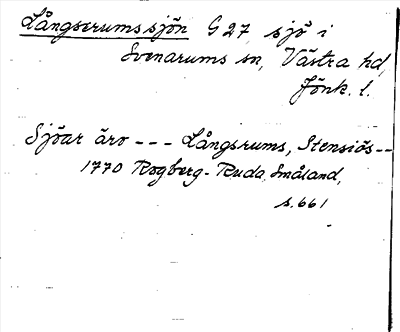 Långserumssjön G 27 sjö i
Svenarums sn, Västra hd,
Jönk. l.
Sjöar äro --- Långsrums, Stensiös--
1770 Rogberg-Ruda, Småland,
s. 661